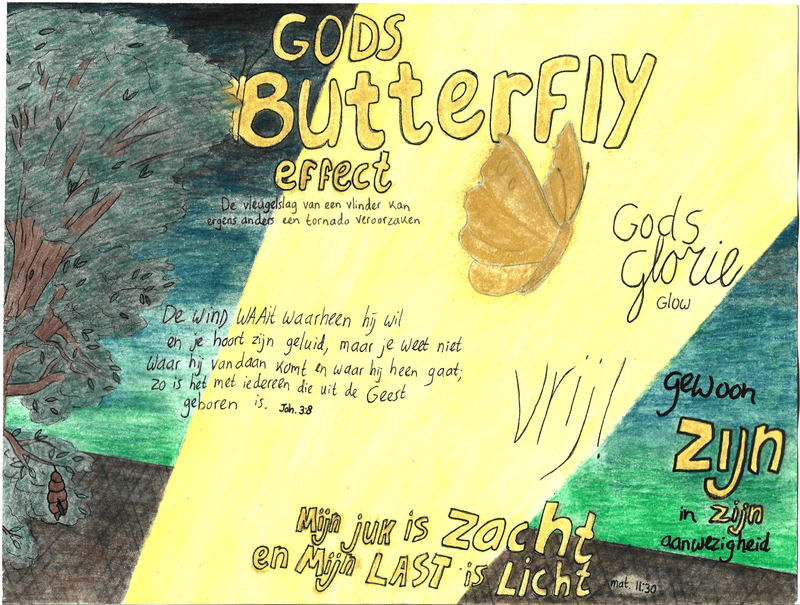 GODS
ButterFLY
effect
De vleugelslag van een vlinder kan
ergens anders een tornado veroorzaken
Gods
Glorie
Glow
De wind WAAit waarheen hij wil
en je hoort zijn geluid, maar je weet niet
waar hij vandaan komt en waar hij heen gaat;
zo is het met iedereen die uit de Geest
geboren is. Joh. 3:8
vrij!
gewoon
zijn
in zijn
aanwezigheid
Mijn juk is zacht
en Mijn LAST is Licht
mat. 11:30